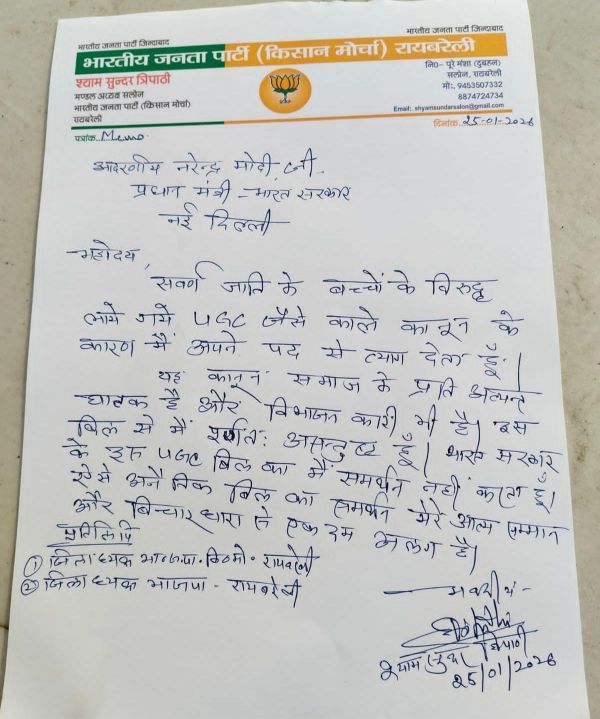 भारतीय जनता पार्टी जिन्दाबाद
भारतीय जनता पार्टी जिन्दाबाद
भारतीय जनता पार्टी (किसान मोर्चा) रायबरेली
श्याम सुन्दर त्रिपाठी
मण्डल अध्यक्ष सलोन
भारतीय जनता पार्टी (किसान मोर्चा)
रायबरेली
नि0- पूरे मंशा (दुबहन)
सलोन, रायबरेली
मो:. 9453507332
8874724734
Email: shyamsundarsalon@gmail.com
पत्रांक Memo.
दिनांक 25-01-2026
आदरणीय नरेन्द्र मोदी जी.
प्रधान मंत्री - भारत सरकार
नई दिल्ली
महोदय,
सवर्ण जाति के बच्चों के विरुद्ध
लाये गये UGC जैसे काले कानून के
कारण मैं अपने पद से त्याग देता हूँ।
यह कानून समाज के प्रति अत्यन्त
घातक है और विभाजन कारी भी है। इस
बिल से मैं पूर्णत: असन्तुष्ट हूँ। भारत सरकार
के इस UGC बिल का मैं समर्थन नहीं करता हूँ।
ऐसे अनैतिक बिल का समर्थन मेरे आत्म सम्मान
और बिच्चार धारा से एकदम अलग है।
प्रतिलिपि
① जिलाध्यक्ष भाजपा. कि०मो० रायबरेली
② जिलाध्यक्ष भाजपा - रायबरेली
भवदीय
श्याम सुन्दर त्रिपाठी
25/01/2026